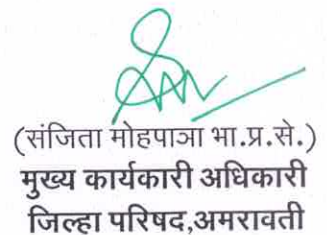 (संजिता मोहपाञा भा.प्र.से.)
मुख्य कार्यकारी अधिकारी
जिल्हा परिषद,अमरावती